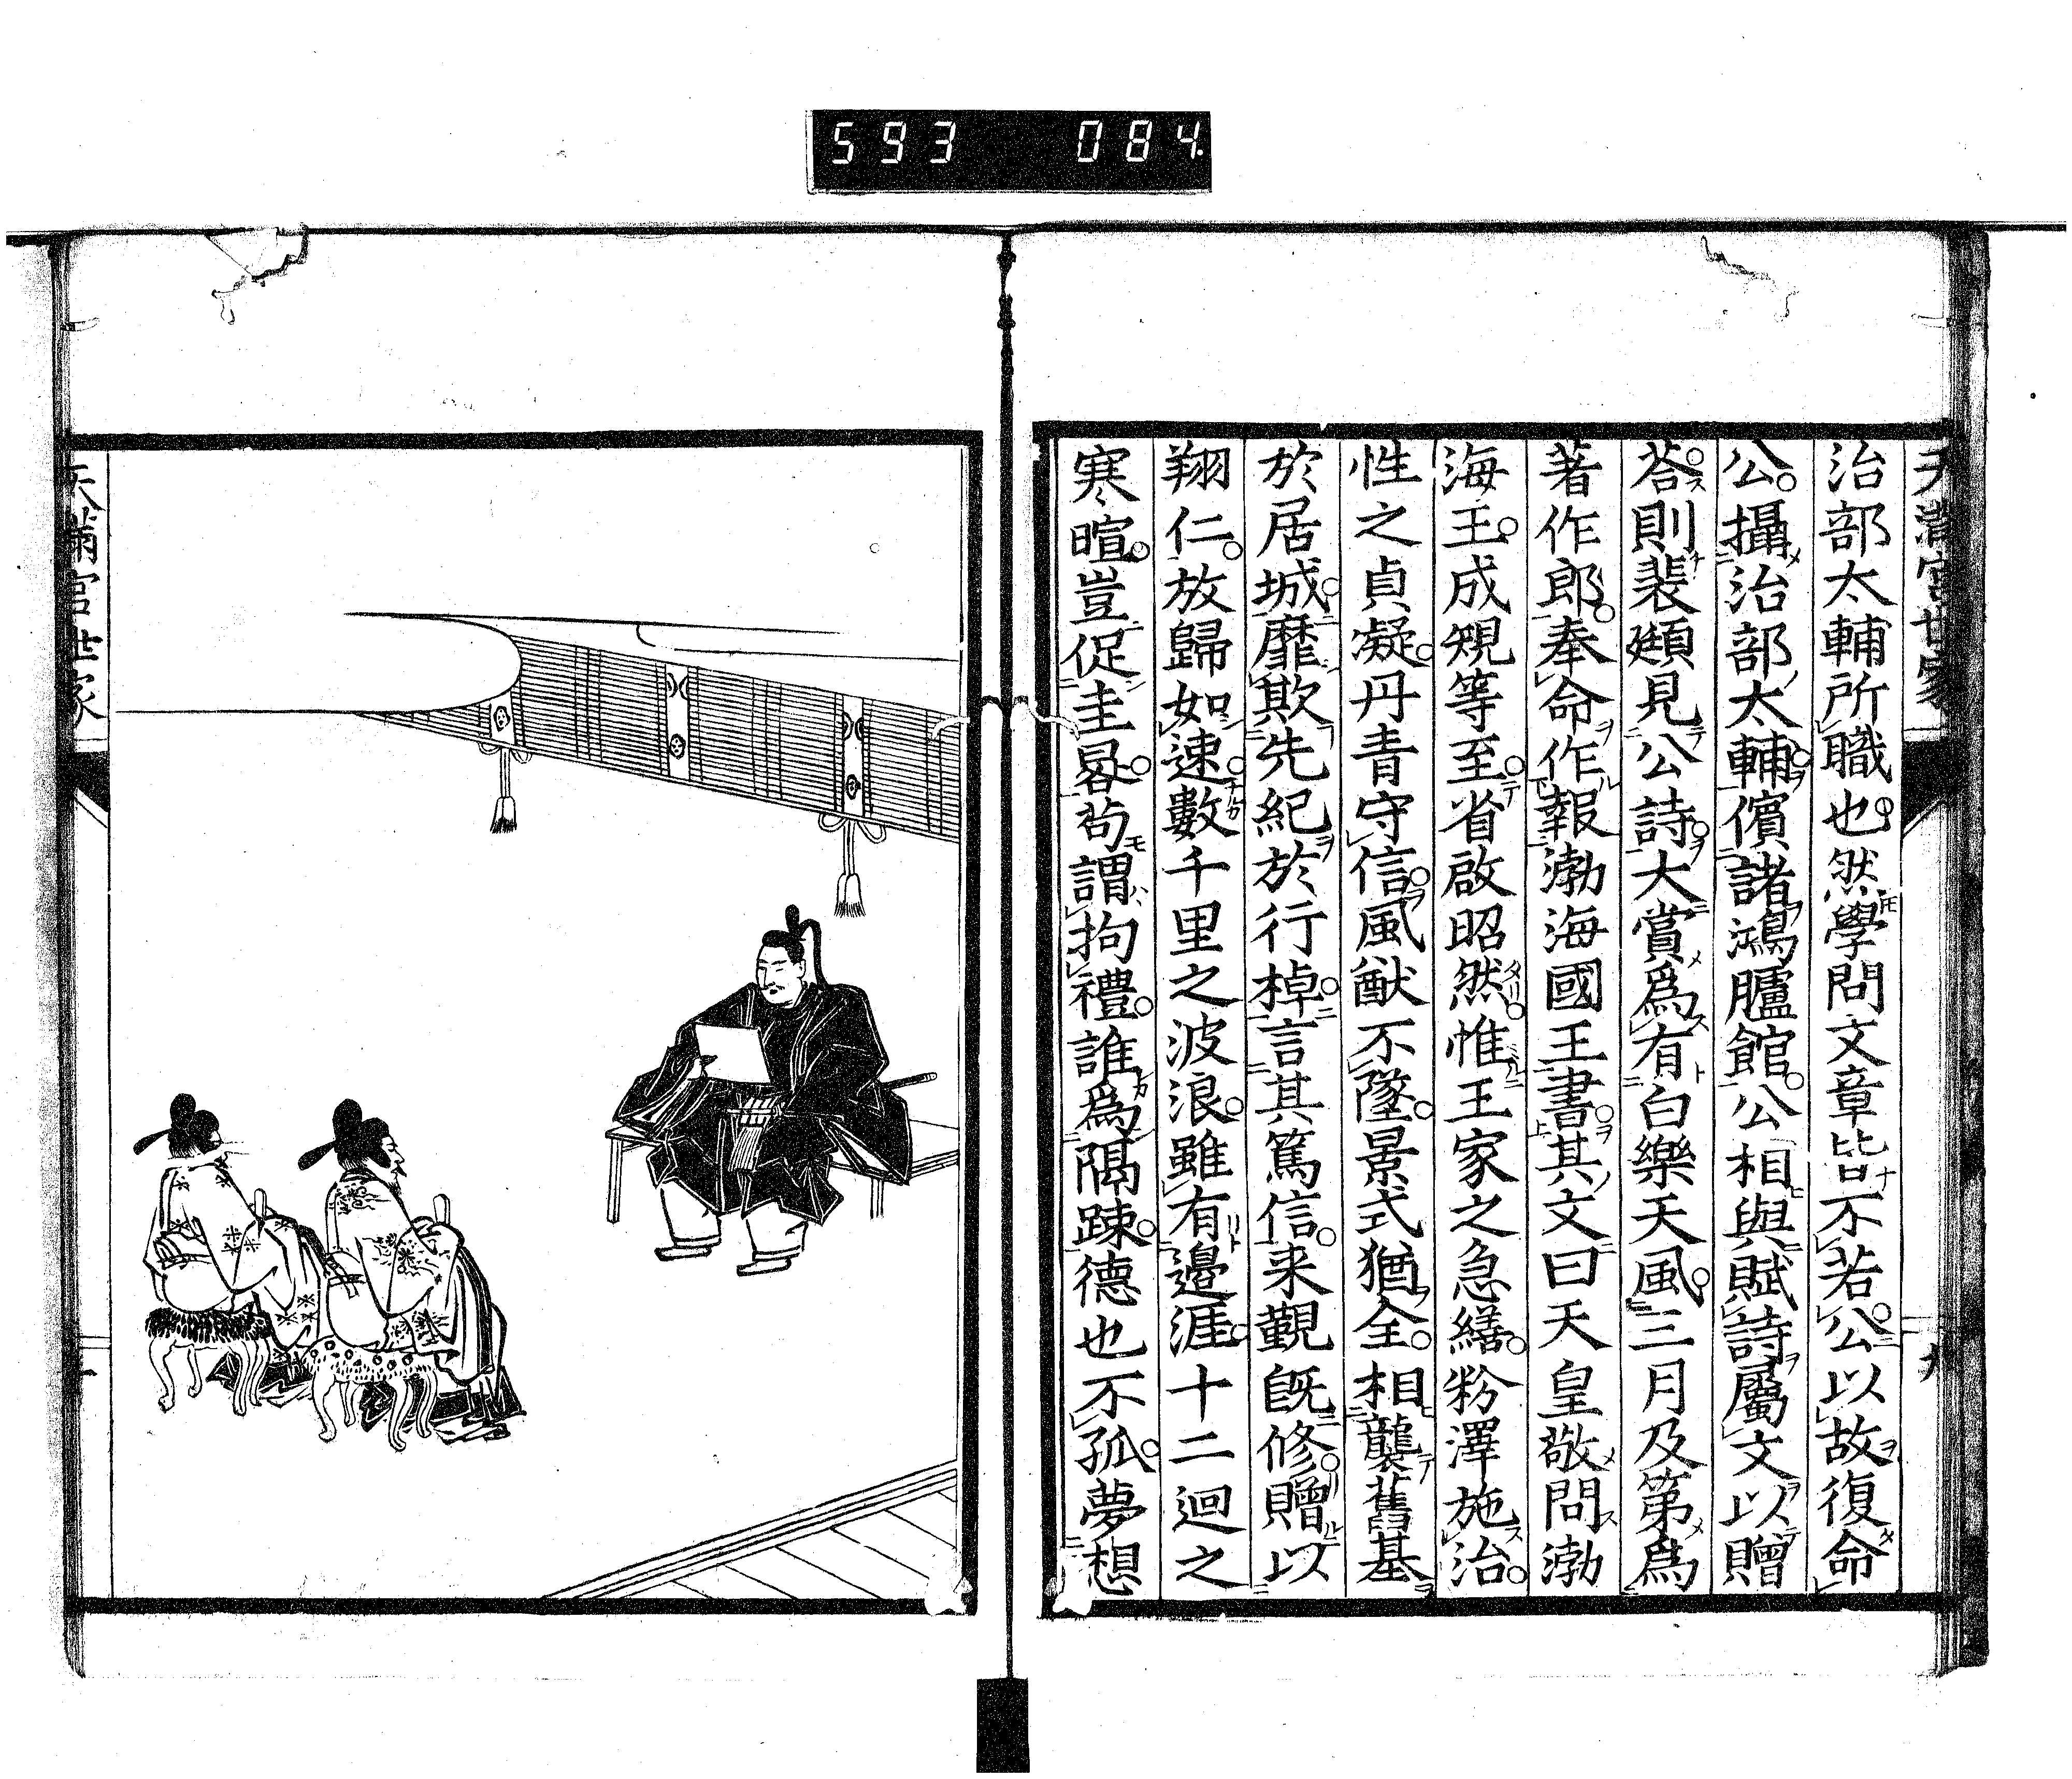 593 084
天滿宮世家
九
治部太輔所職也然學問文章皆不若公以故復命
公攝治部太輔儐諸鴻臚館公相與賦詩屬文以贈
荅則裴頲見公詩大賞爲有白樂天風三月及第爲
著作郎奉命作報渤海國王書其文曰天皇敬問渤
海王成規等至省啟昭然惟王家之急繕粉澤施治
性之貞凝丹青守信風猷不墜景式猶全相襲舊基
於居城靡欺先紀於行棹言其篤信来覲既修贈以
翔仁放歸如速數千里之波浪雖有邊涯十二迴之
寒暄豈促圭晷茍謂拘禮誰爲隔踈德也不孤夢想
天滿宮世家